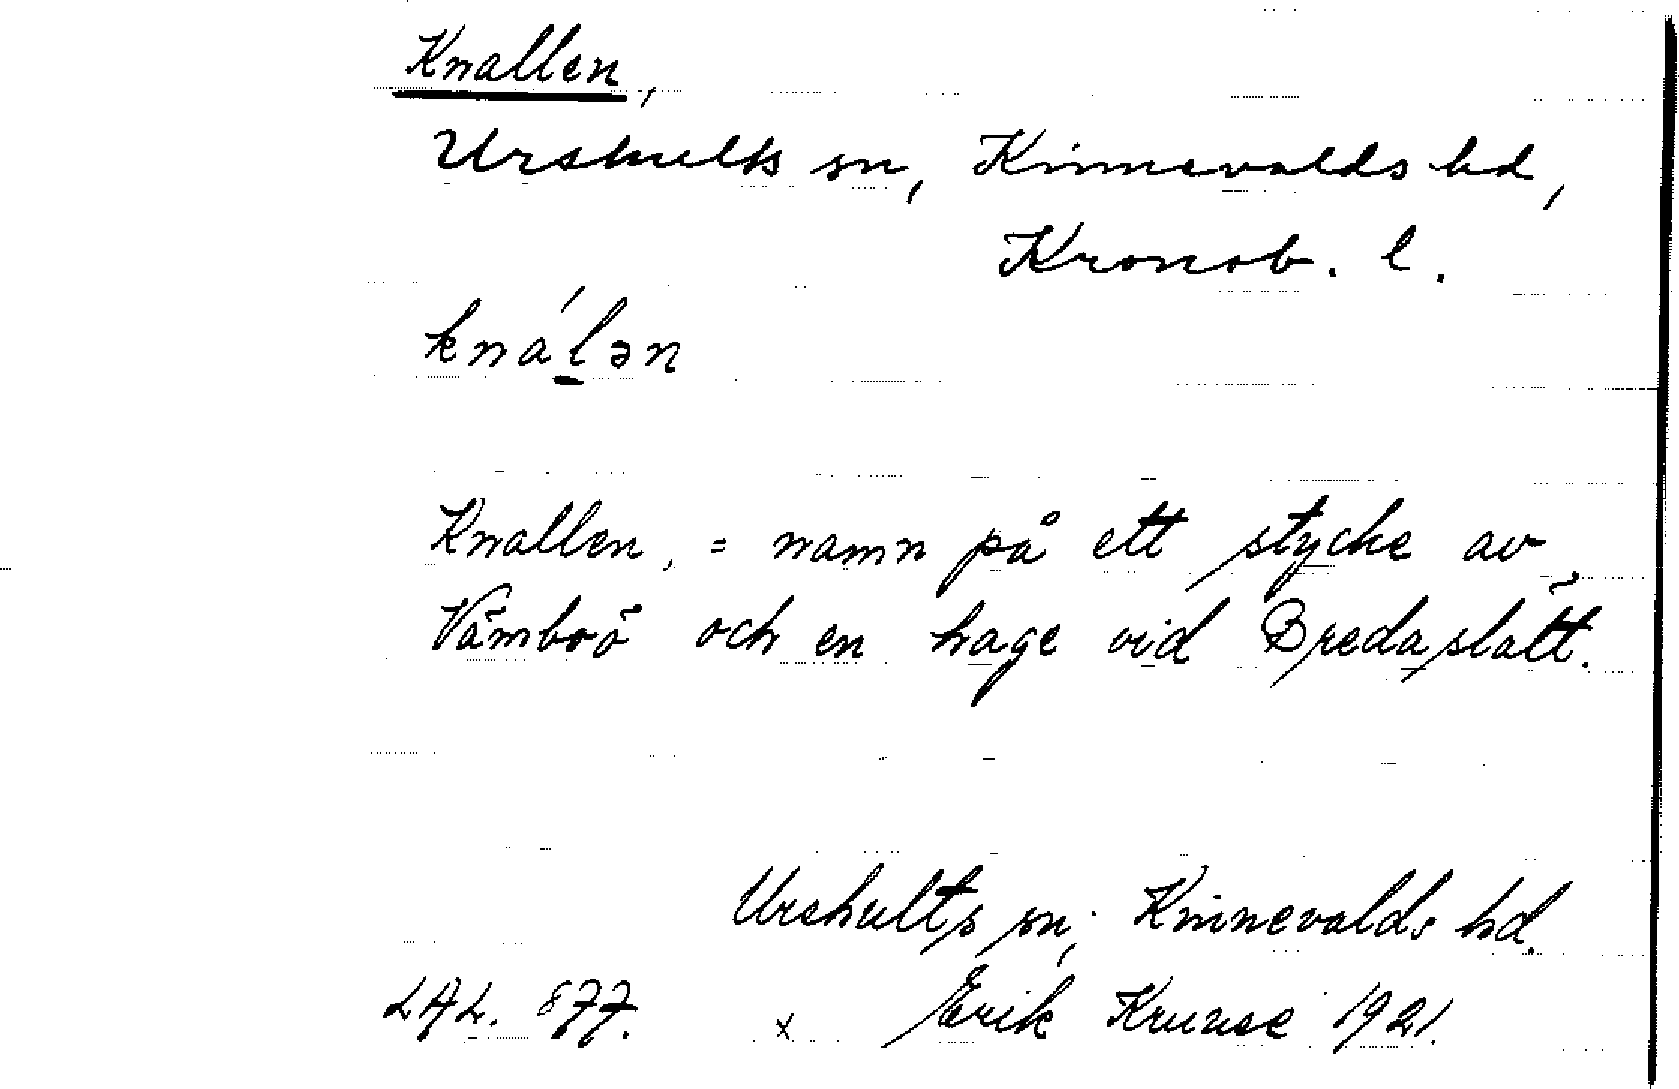 Knallen,
Urshults sn, Kinnevalds hd,
Kronob. l.
knaḻ́ən
Knallen, = namn på ett stycke av
Vämboö och en hage vid Bredaslätt.
Urshults sn; Kinnevalds hd.
LAL. 877. x Erik Kruuse 1921.